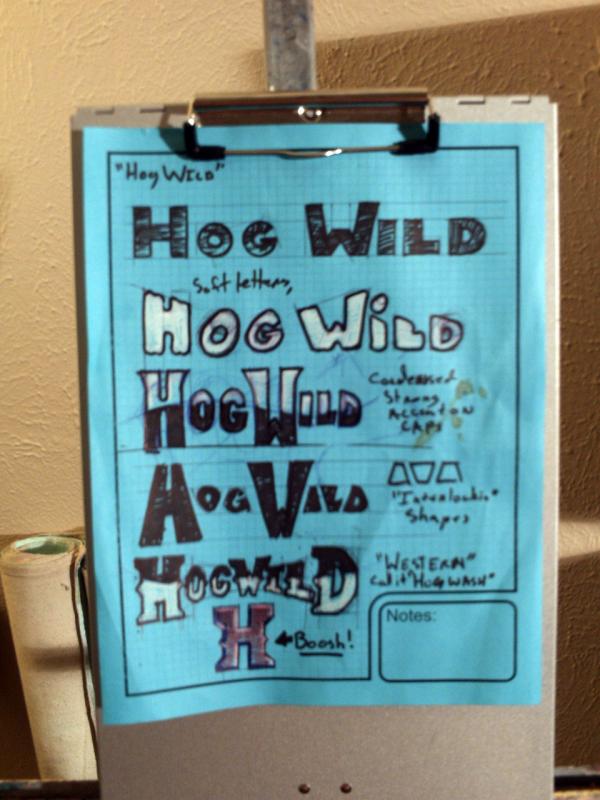 "Hog Wild"
HOG WILD
Soft letters,
HOG WiLD
HOG WILD
Condensed
Strong
Accent on
Caps
HOG WILD
"Interlockin"
Shapes
HOGWILD
"WESTERN"
Call it "HOGWASH"
H
Boosh!
Notes: